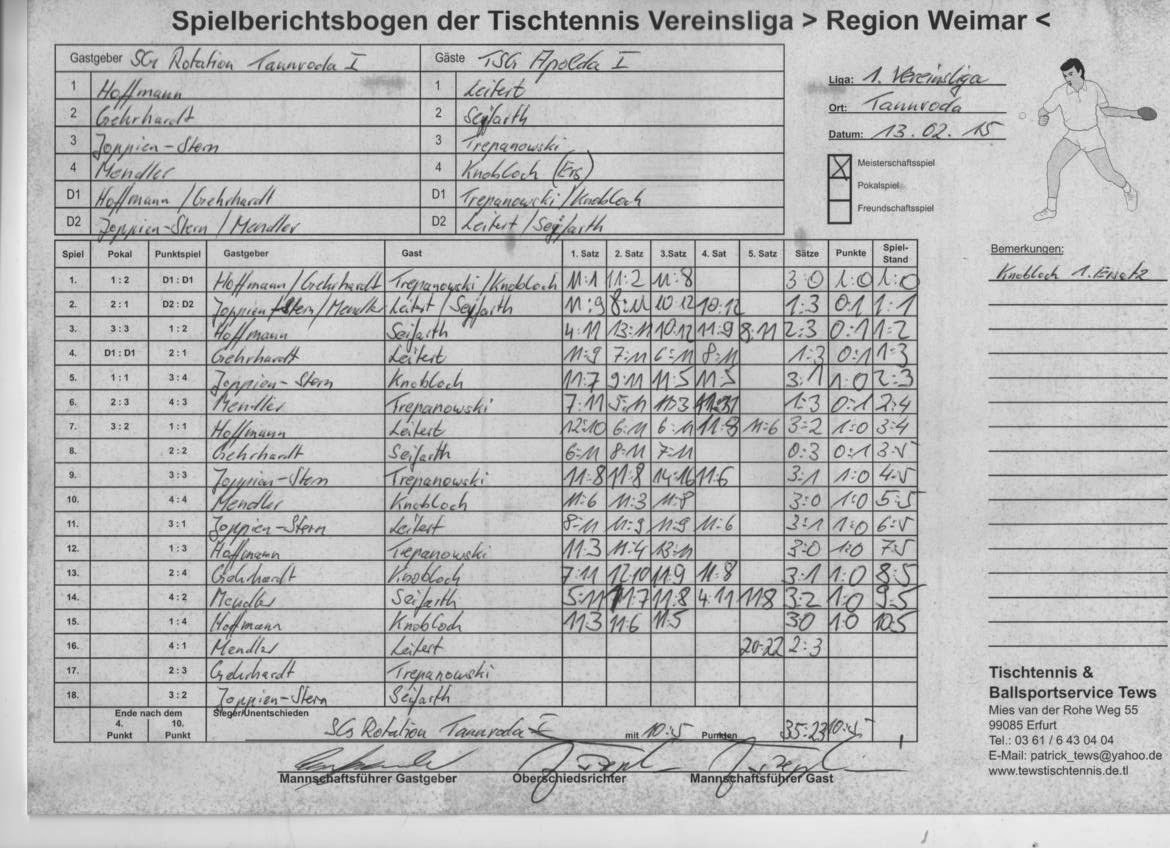 Spielberichtsbogen der Tischtennis Vereinsliga > Region Weimar <
Gastgeber SG Rotation Tannroda I Gäste TSG Apolda I
1 Hoffmann 1 Leifert
2 Gehrhardt 2 Seifarth
3 Joppien-Stern 3 Trepanowski
4 Mendler 4 Knobloch (Ers)
D1 Hoffmann/Gehrhardt D1 Trepanowski/Knobloch
D2 Joppien-Stern/Mendler D2 Leifert/Seifarth
Liga: 1. Vereinsliga
Ort: Tannroda
Datum: 13.02.15
Meisterschaftsspiel
Pokalspiel
Freundschaftsspiel
Spiel Pokal Punktspiel Gastgeber Gast 1. Satz 2. Satz 3.Satz 4. Sat 5. Satz Sätze Punkte Spiel-Stand
1. 1 : 2 D1 : D1 Hoffmann/Gehrhardt Trepanowski/Knobloch 11:1 11:2 11:8 3:0 1:0 1:0
2. 2 : 1 D2 : D2 Joppien-Stern/Mendler Leifert/Seifarth 11:9 8:11 10:12 10:12 1:3 0:1 1:1
3. 3 : 3 1 : 2 Hoffmann Seifarth 4:11 13:11 10:12 11:9 8:11 2:3 0:1 1:2
4. D1 : D1 2 : 1 Gehrhardt Leifert 11:9 7:11 6:11 8:11 1:3 0:1 1:3
5. 1 : 1 3 : 4 Joppien-Stern Knobloch 11:7 9:11 11:5 11:5 3:1 1:0 2:3
6. 2 : 3 4 : 3 Mendler Trepanowski 7:11 5:11 11:3 1:3 0:1 2:4
7. 3 : 2 1 : 1 Hoffmann Leifert 12:10 6:11 6:11 11:8 11:6 3:2 1:0 3:4
8. 2 : 2 Gehrhardt Seifarth 6:11 8:11 7:11 0:3 0:1 3:5
9. 3 : 3 Joppien-Stern Trepanowski 11:8 11:8 14:16 11:6 3:1 1:0 4:5
10. 4 : 4 Mendler Knobloch 11:6 11:3 11:8 3:0 1:0 5:5
11. 3 : 1 Joppien-Stern Leifert 8:11 11:9 11:9 11:6 3:1 1:0 6:5
12. 1 : 3 Hoffmann Trepanowski 11:3 11:4 13:11 3:0 1:0 7:5
13. 2 : 4 Gehrhardt Knobloch 7:11 12:10 11:9 11:8 3:1 1:0 8:5
14. 4 : 2 Mendler Seifarth 5:11 11:7 11:8 4:11 11:8 3:2 1:0 9:5
15. 1 : 4 Hoffmann Knobloch 11:3 11:6 11:5 3:0 1:0 10:5
16. 4 : 1 Mendler Leifert 20:22 2:3
17. 2 : 3 Gehrhardt Trepanowski
18. 3 : 2 Joppien-Stern Seifarth
Ende nach dem 4. Punkt 10. Punkt Sieger/Unentschieden SG Rotation Tannroda I mit 10:5 Punkten 35:23 10:5
Mannschaftsführer Gastgeber Oberschiedsrichter Mannschaftsführer Gast
Bemerkungen:
Knobloch 1. Ersatz
Tischtennis &
Ballsportservice Tews
Mies van der Rohe Weg 55
99085 Erfurt
Tel.: 03 61 / 6 43 04 04
E-Mail: patrick_tews@yahoo.de
www.tewstischtennis.de.tl